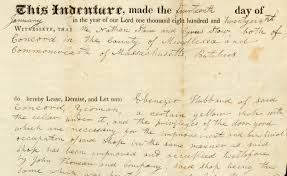 This Indenture, made the twentieth day of
January in the year of our Lord one thousand eight hundred and
WITNESSETH, THAT We Nathan and Cyrus Stow both of
Concord in the County of Middlesex and
Commonwealth of Massachusetts, Butchers
do hereby Lease, Demise, and Let unto Ebenezer Hubbard of said
Concord Yeoman, a certain yellow shop with
the cellar under it, and the privileges of the door yard
which are necessary for the improvement and
occupation of said shop in the same manner as said
shop has been improved and occupied heretofore
by John and company said shop being the